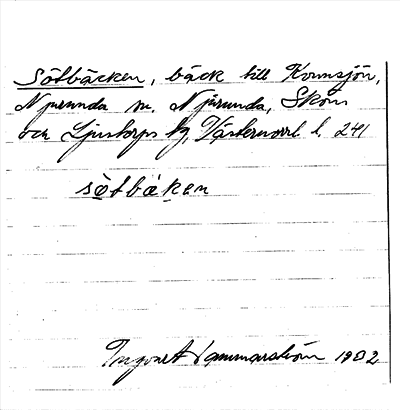 Sötbäcken, bäck till Kornsjön,
Njurunda sn. Njurunda, Sköns
och Ljustorps tg, Västernorrl. l. 241
sötbäken
Ingvart Hammarström 1982